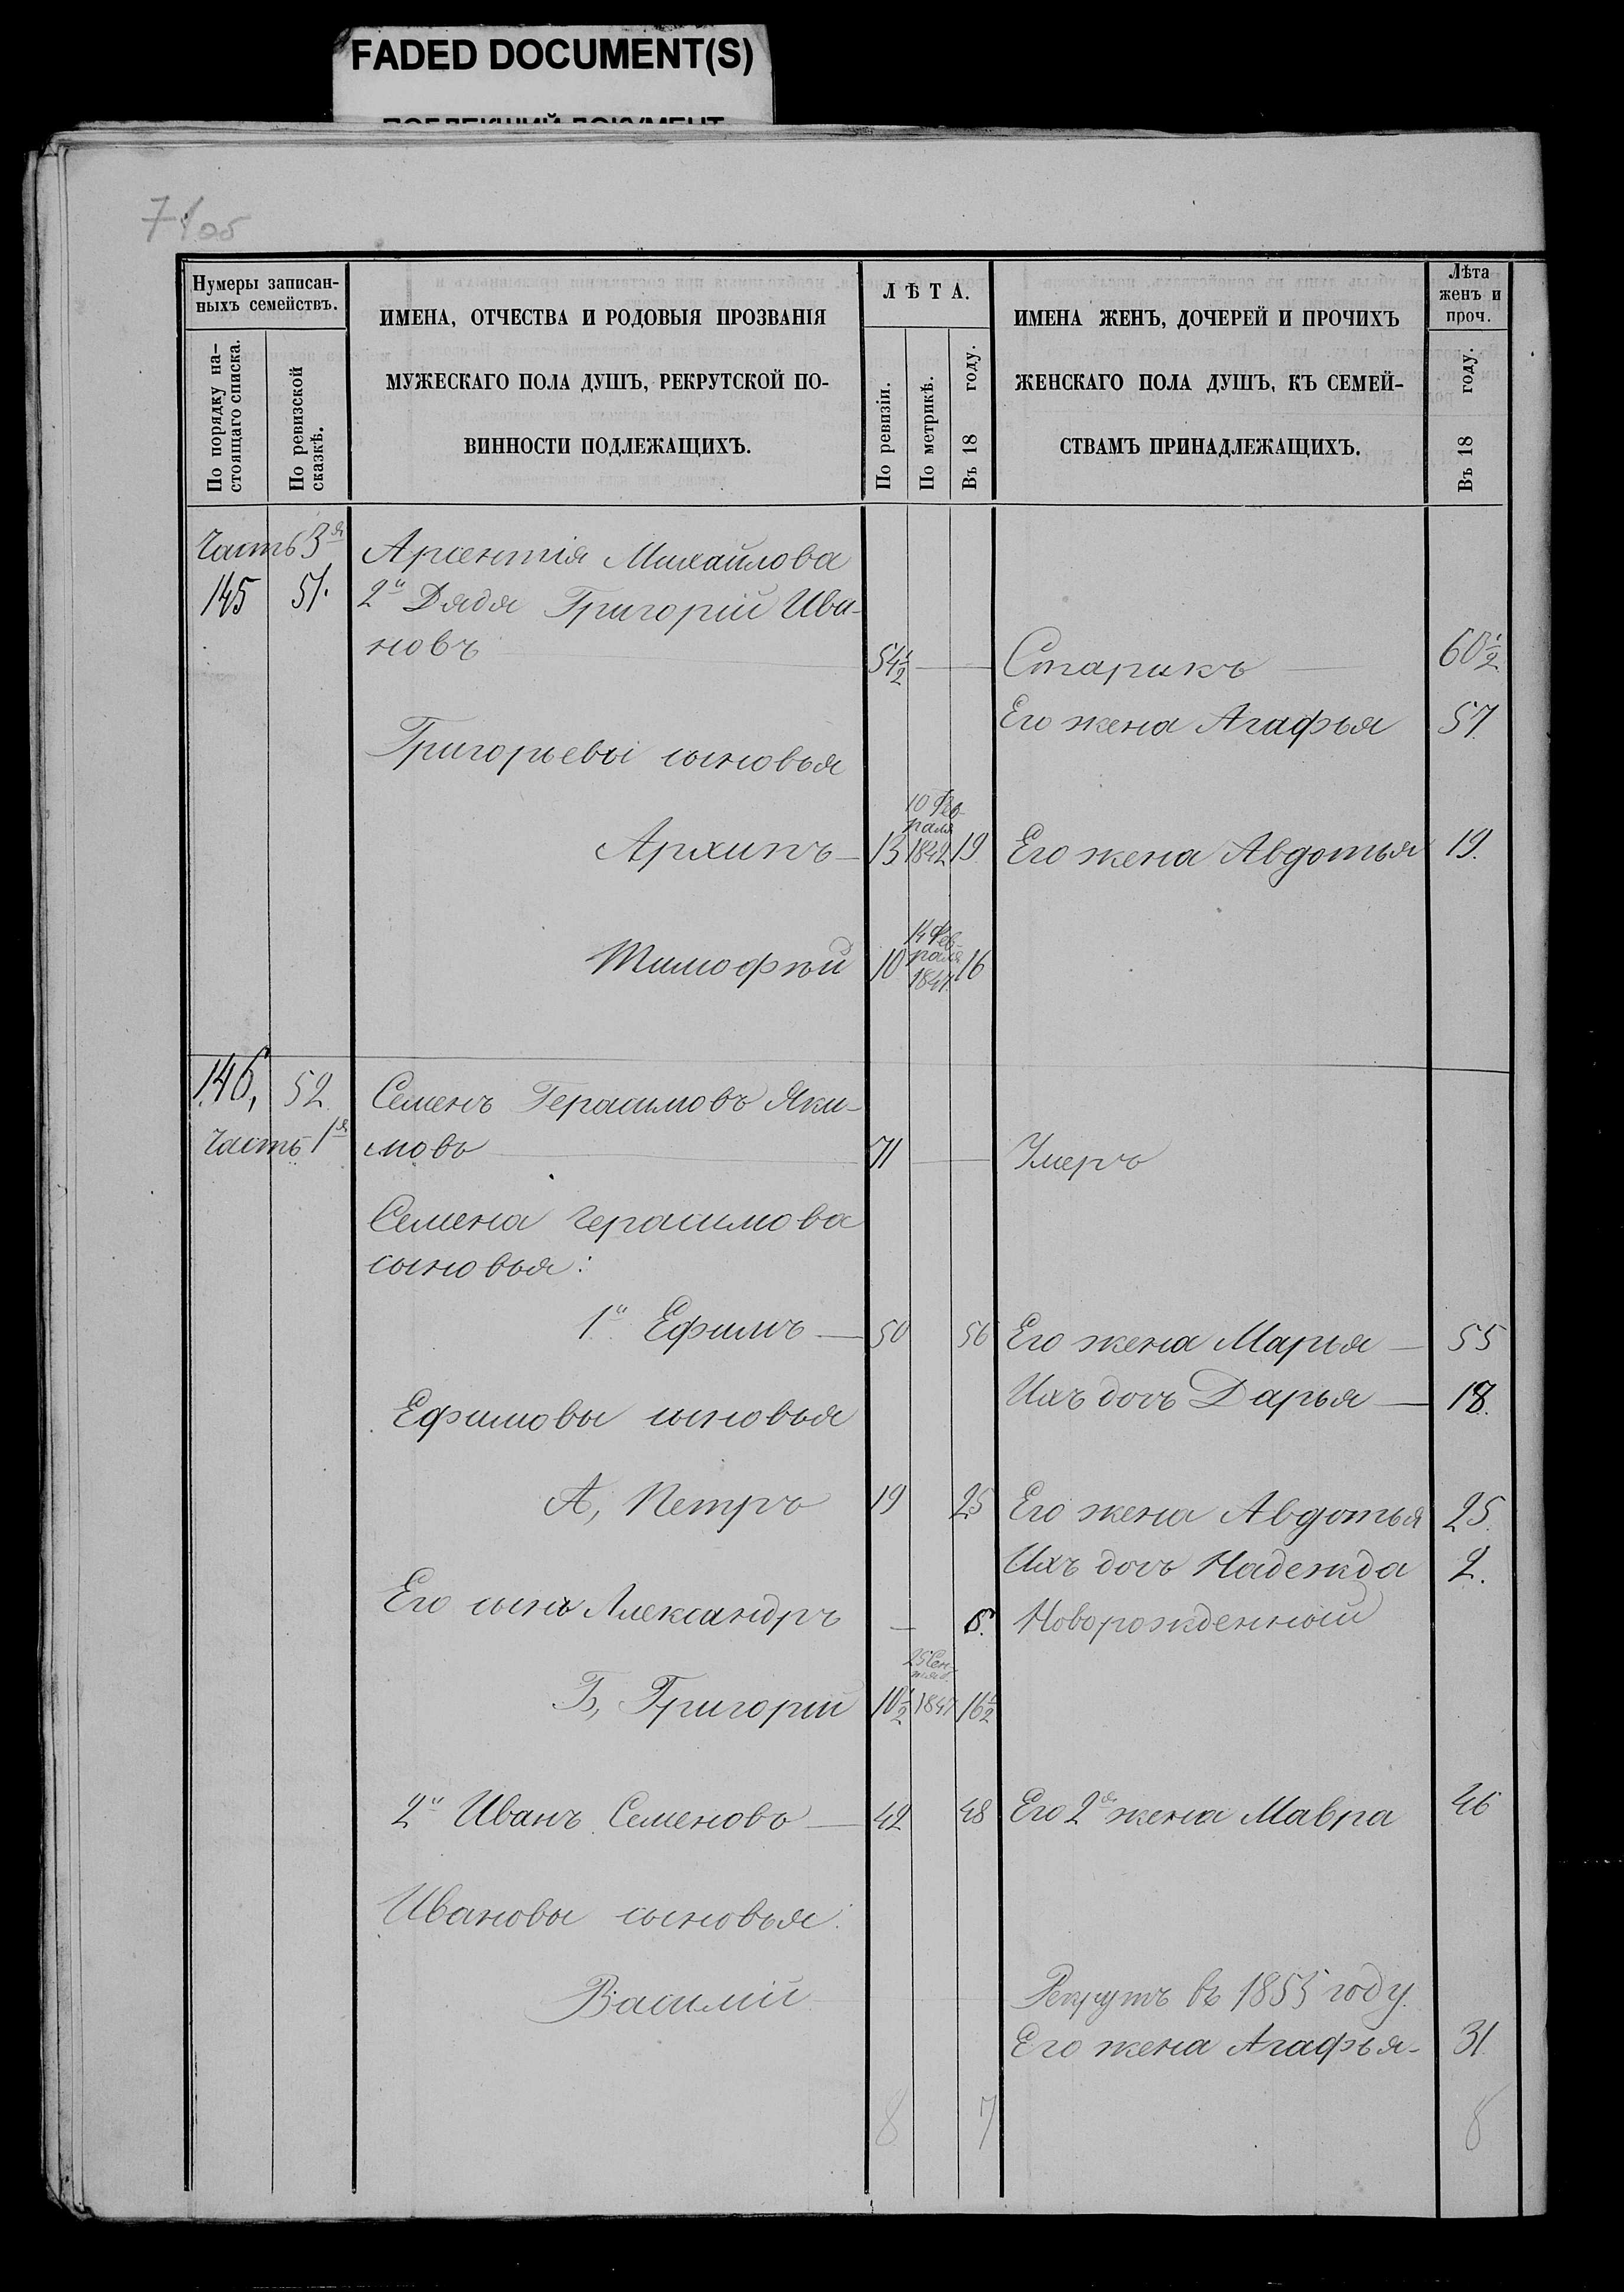 FADED DOCUMENT(S)
71об
Нумеры записан-
ныхъ семействъ.
По порядку на-
стоящаго списка.
По ревизской
сказкѣ.
ИМЕНА, ОТЧЕСТВА И РОДОВЫЯ ПРОЗВАНІЯ
МУЖЕСКАГО ПОЛА ДУШЪ, РЕКРУТСКОЙ ПО-
ВИННОСТИ ПОДЛЕЖАЩИХЪ.
ЛѢТА.
По ревизіи.
По метрикѣ.
Въ 18 году.
ИМЕНА ЖЕНЪ, ДОЧЕРЕЙ И ПРОЧИХЪ
ЖЕНСКАГО ПОЛА ДУШЪ, КЪ СЕМЕЙ-
СТВАМЪ ПРИНАДЛЕЖАЩИХЪ.
Лѣта
женъ и
проч.
Въ 18 году.
Часть 3я Арсентія Михайлова
145 51. 2й Дядя Григорій Ива-
новъ 54½ Старикъ 60½
Его жена Агафья 57.
Григорьевы сыновья
10 Фев-
раля
Архипъ 13 1842 19 Его жена Авдотья 19.
14 Фев-
Тимофѣй 10 раля 16
184
146, 52 Семенъ Герасимовъ Яки-
Часть 1я мовъ 71 Умеръ
Семена Герасимова
сыновья:
1й Ефимъ 50 56 Его жена Марья 55
Ихъ дочь Дарья 18.
Ефимовы сыновья
А, Петръ 19 25 Его жена Авдотья 25.
Ихъ дочь Надежда 2.
Его сынъ Александръ Новорожденный
25 Сен-
тяб.
Б, Григорій 10½ 1847 16½
2й Иванъ Семеновъ 42 48 Его 2я жена Мавра 46
Ивановы сыновья:
Василій Рекрутъ въ 1855 году.
Его жена Агафья 31
8 7 8